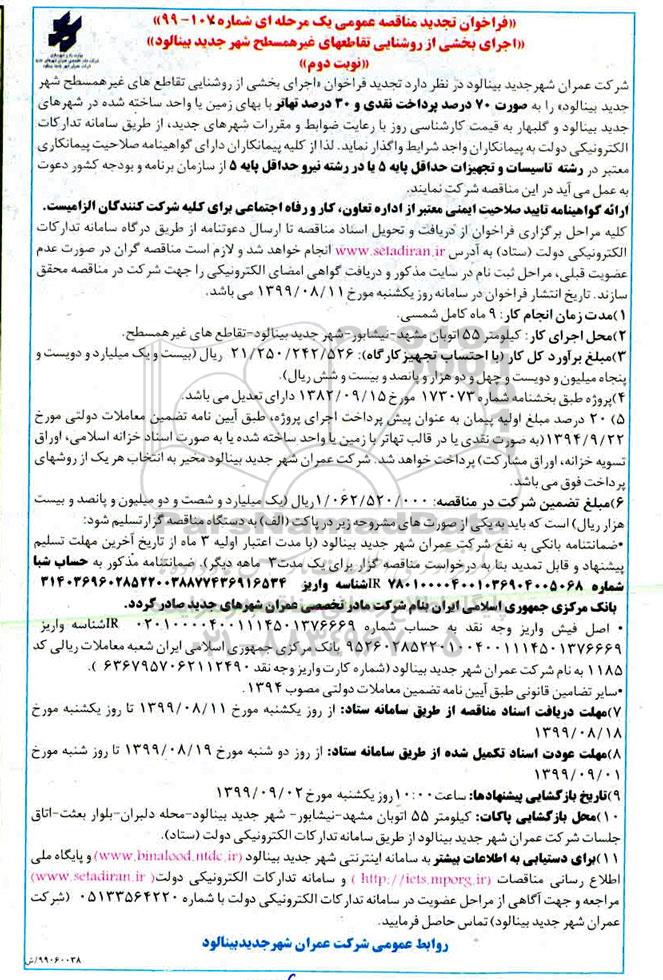 «فراخوان تجدید مناقصه عمومی یک مرحله ای شماره ۱۰۷-۹۹»
«اجرای بخشی از روشنایی تقاطعهای غیرهمسطح شهر جدید بینالود»
«نوبت دوم»
شرکت عمران شهر جدید بینالود در نظر دارد تجدید فراخوان «اجرای بخشی از روشنایی تقاطع های غیرهمسطح شهر
جدید بینالود» را به صورت ۷۰ درصد پرداخت نقدی و ۳۰ درصد تهاتر با بهای زمین یا واحد ساخته شده در شهرهای
جدید بینالود و گلبهار به قیمت کارشناسی روز با رعایت ضوابط و مقررات شهرهای جدید، از طریق سامانه تدارکات
الکترونیکی دولت به پیمانکاران واجد شرایط واگذار نماید. لذا از کلیه پیمانکاران دارای گواهینامه صلاحیت پیمانکاری
معتبر در رشته تاسیسات و تجهیزات حداقل پایه ۵ یا در رشته نیرو حداقل پایه ۵ از سازمان برنامه و بودجه کشور دعوت
به عمل می آید در این مناقصه شرکت نمایند.
ارائه گواهینامه تایید صلاحیت ایمنی معتبر از اداره تعاون، کار و رفاه اجتماعی برای کلیه شرکت کنندگان الزامیست.
کلیه مراحل برگزاری فراخوان از دریافت و تحویل اسناد مناقصه تا ارسال دعوتنامه از طریق درگاه سامانه تدارکات
الکترونیکی دولت (ستاد) به آدرس www.setadiran.ir انجام خواهد شد و لازم است مناقصه گران در صورت عدم
عضویت قبلی، مراحل ثبت نام در سایت مذکور و دریافت گواهی امضای الکترونیکی را جهت شرکت در مناقصه محقق
سازند. تاریخ انتشار فراخوان در سامانه روز یکشنبه مورخ ۱۳۹۹/۰۸/۱۱ می باشد.
۱)مدت زمان انجام کار: ۹ ماه کامل شمسی.
۲)محل اجرای کار: کیلومتر ۵۵ اتوبان مشهد-نیشابور-شهر جدید بینالود-تقاطع های غیرهمسطح.
۳)مبلغ برآورد کل کار (با احتساب تجهیز کارگاه): ۲۱/۲۵۰/۲۴۲/۵۲۶ ریال (بیست و یک میلیارد و دویست و
پنجاه میلیون و دویست و چهل و دو هزار و پانصد و بیست و شش ریال).
۴)پروژه طبق بخشنامه شماره ۱۷۳۰۷۳ مورخ ۱۳۸۲/۰۹/۱۵ دارای تعدیل می باشد.
۵) ۲۰ درصد مبلغ اولیه پیمان به عنوان پیش پرداخت اجرای پروژه، طبق آیین نامه تضمین معاملات دولتی مورخ
۱۳۹۴/۹/۲۲(به صورت نقدی یا در قالب تهاتر با زمین یا واحد ساخته شده یا به صورت اسناد خزانه اسلامی، اوراق
تسویه خزانه، اوراق مشارکت) پرداخت خواهد شد. شرکت عمران شهر جدید بینالود مخیر به انتخاب هر یک از روشهای
پرداخت فوق می باشد.
۶)مبلغ تضمین شرکت در مناقصه: ۱/۰۶۲/۵۲۰/۰۰۰ریال (یک میلیارد و شصت و دو میلیون و پانصد و بیست
هزار ریال) است که باید به یکی از صورت های مشروحه زیر در پاکت (الف) به دستگاه مناقصه گزار تسلیم شود:
•ضمانتنامه بانکی به نفع شرکت عمران شهر جدید بینالود (با مدت اعتبار اولیه ۳ ماه از تاریخ آخرین مهلت تسلیم
پیشنهاد و قابل تمدید بنا به درخواست مناقصه گزار برای یک مدت ۳ ماهه دیگر). ضمانتنامه مذکور به حساب شبا
شماره IR۷۸۰۱۰۰۰۰۴۰۰۱۰۳۶۹۰۴۰۰۵۰۶۸شناسه واریز ۳۱۴۰۳۶۹۶۰۲۸۵۲۲۰۰۳۸۸۷۷۴۳۶۹۱۶۵۳۴
بانک مرکزی جمهوری اسلامی ایران بنام شرکت مادر تخصصی عمران شهرهای جدید صادر گردد.
• اصل فیش واریز وجه نقد به حساب شماره IR۰۲۰۱۰۰۰۰۴۰۰۱۱۱۴۵۰۱۳۷۶۶۶۹شناسه واریز
۹۵۳۶۰۲۸۵۲۲۰۱۰۰۴۰۰۱۱۱۴۵۰۱۳۷۶۶۶۹ بانک مرکزی جمهوری اسلامی ایران شعبه معاملات ریالی کد
۱۱۸۵ به نام شرکت عمران شهر جدید بینالود (شماره کارت واریز وجه نقد ۶۳۶۷۹۵۷۰۶۲۱۱۲۴۹۰ ).
•سایر تضامین قانونی طبق آیین نامه تضمین معاملات دولتی مصوب ۱۳۹۴.
۷)مهلت دریافت اسناد مناقصه از طریق سامانه ستاد: از روز یکشنبه مورخ ۱۳۹۹/۰۸/۱۱ تا روز یکشنبه مورخ
۱۳۹۹/۰۸/۱۸
۸)مهلت عودت اسناد تکمیل شده از طریق سامانه ستاد: از روز دو شنبه مورخ ۱۳۹۹/۰۸/۱۹ تا روز شنبه مورخ
۱۳۹۹/۰۹/۰۱
۹)تاریخ بازگشایی پیشنهادها: ساعت ۱۰:۰۰روز یکشنبه مورخ ۱۳۹۹/۰۹/۰۲
۱۰)محل بازگشایی پاکات: کیلومتر ۵۵ اتوبان مشهد-نیشابور- شهر جدید بینالود-محله دلبران-بلوار بعثت-اتاق
جلسات شرکت عمران شهر جدید بینالود از طریق سامانه تدارکات الکترونیکی دولت (ستاد).
۱۱)برای دستیابی به اطلاعات بیشتر به سامانه اینترنتی شهر جدید بینالود (www.binalood.ntdc.ir) و پایگاه ملی
اطلاع رسانی مناقصات (http://iets.mporg.ir ) و سامانه تدارکات الکترونیکی دولت( www.setadiran.ir)
مراجعه و جهت آگاهی از مراحل عضویت در سامانه تدارکات الکترونیکی دولت با شماره ۰۵۱۳۳۵۶۴۲۲۰ (شرکت
عمران شهر جدید بینالود) تماس حاصل فرمایید.
روابط عمومی شرکت عمران شهر جدید بینالود
۹۹۰۶۰۰۳۸/ش